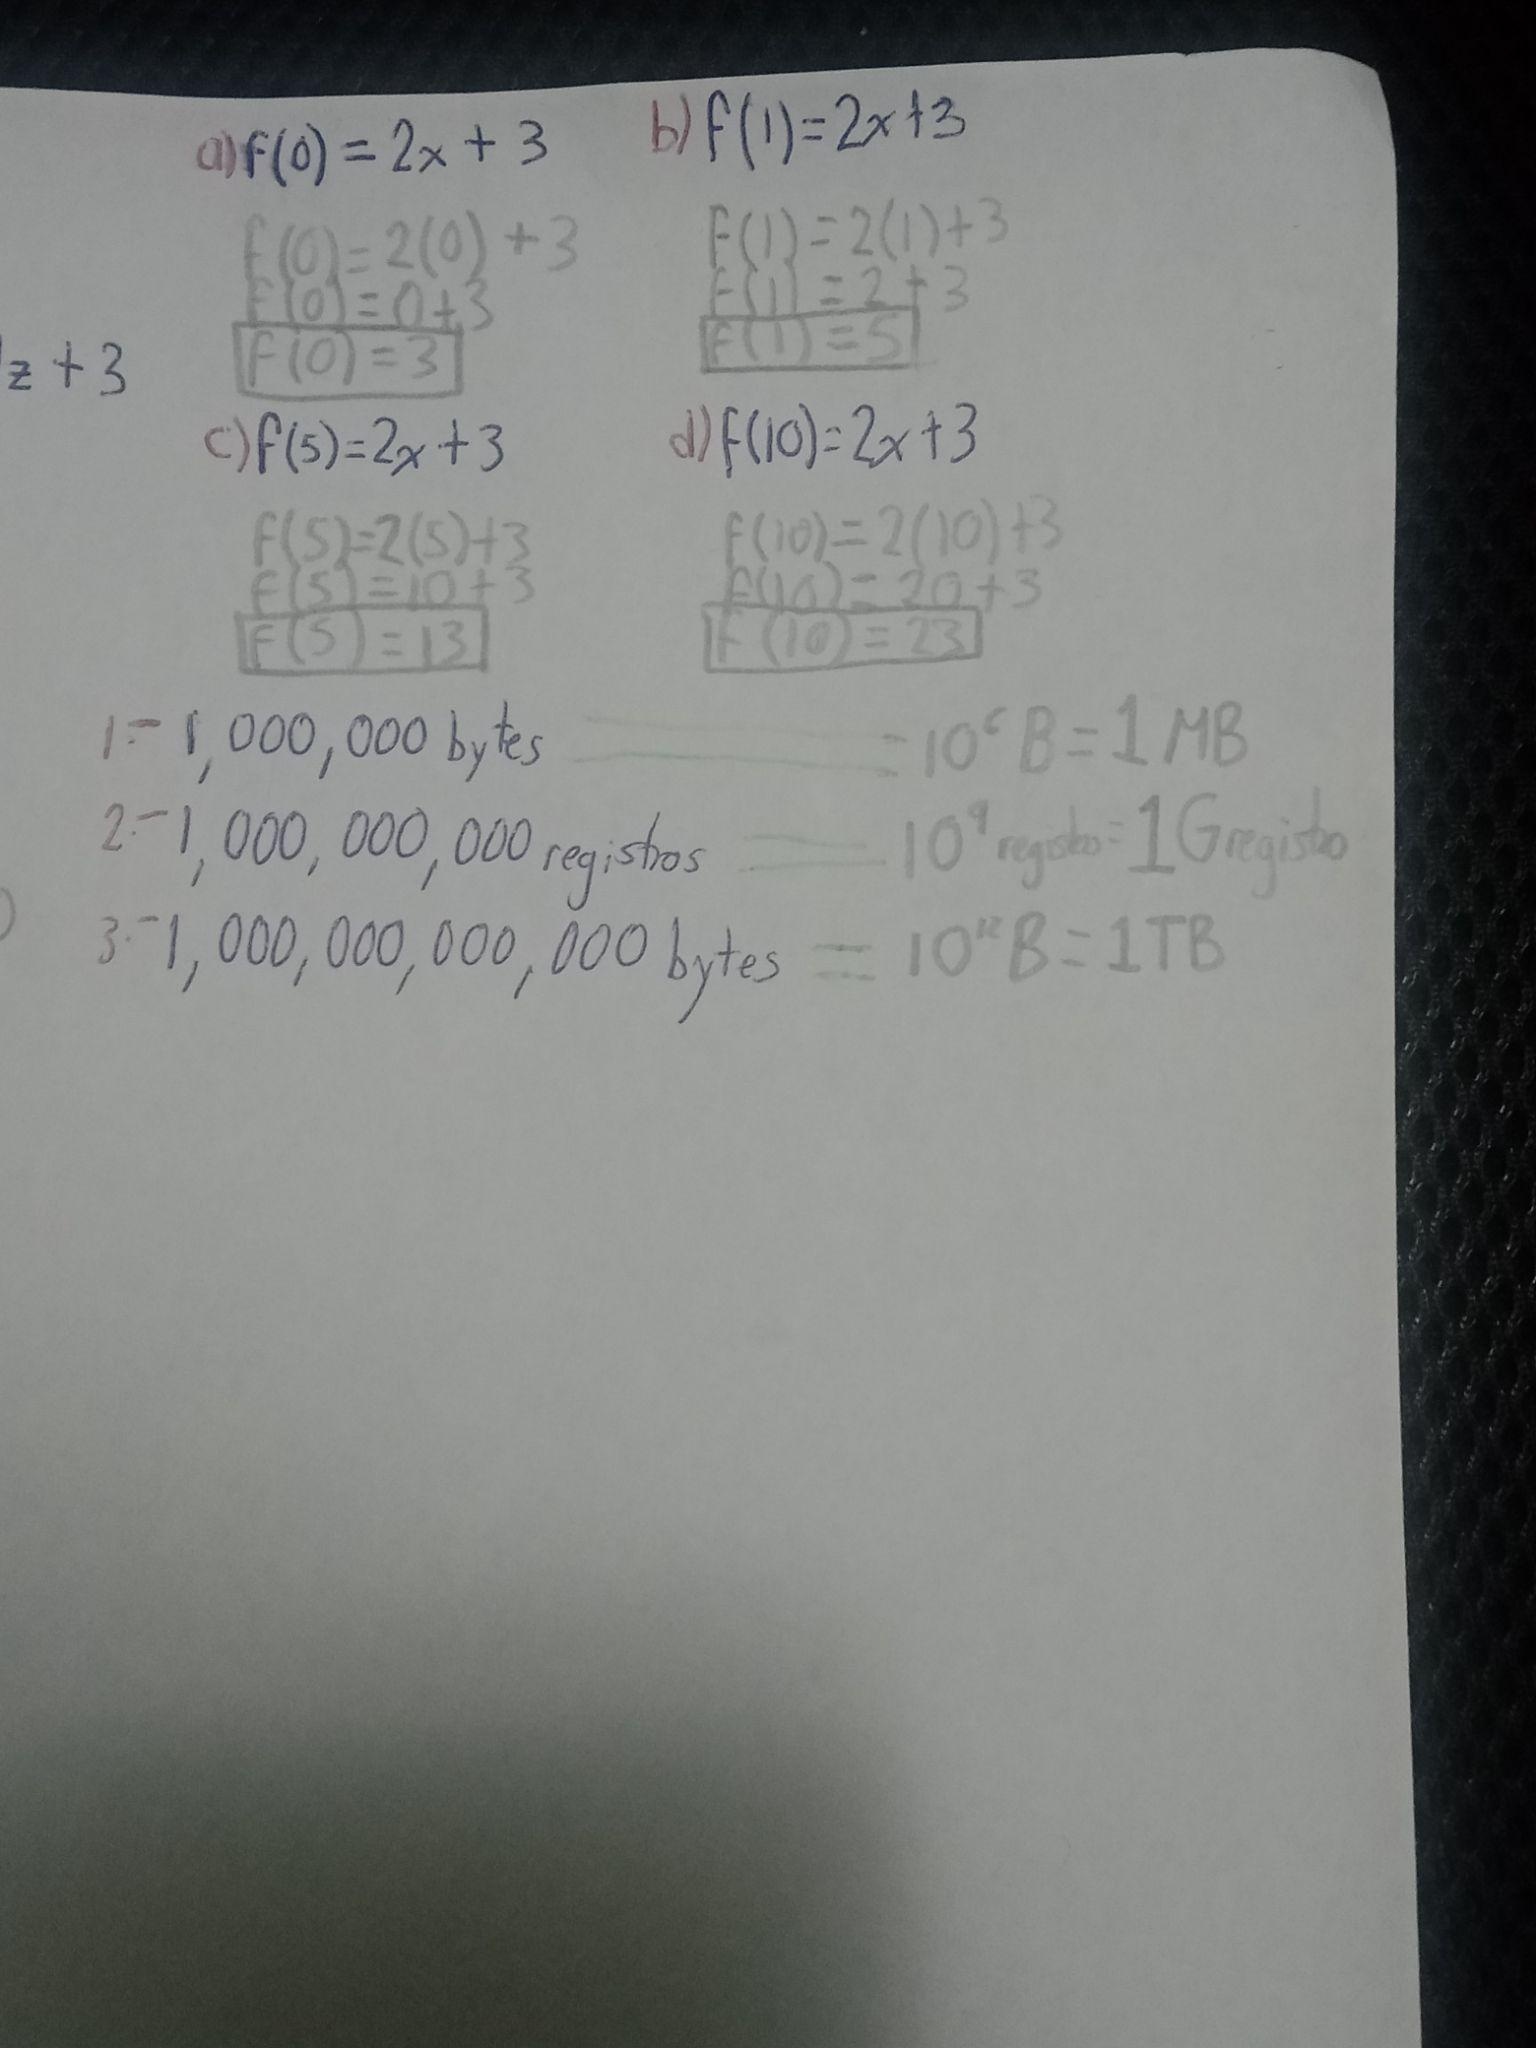 a) f(0) = 2x + 3
f(0) = 2(0) + 3
f(0) = 0+3
f(0) = 3
b) f(1) = 2x+3
f(1) = 2(1)+3
f(1) = 2+3
f(1) = 5
z + 3
c) f(5) = 2x+3
f(5) = 2(5)+3
f(5) = 10+3
f(5) = 13
d) f(10) = 2x+3
f(10) = 2(10)+3
f(10) = 20+3
f(10) = 23
1.- 1,000,000 bytes = 10⁶ B = 1 MB
2.- 1,000,000,000 registros = 10⁹ registro = 1G registro
3.- 1,000,000,000,000 bytes = 10¹² B = 1TB